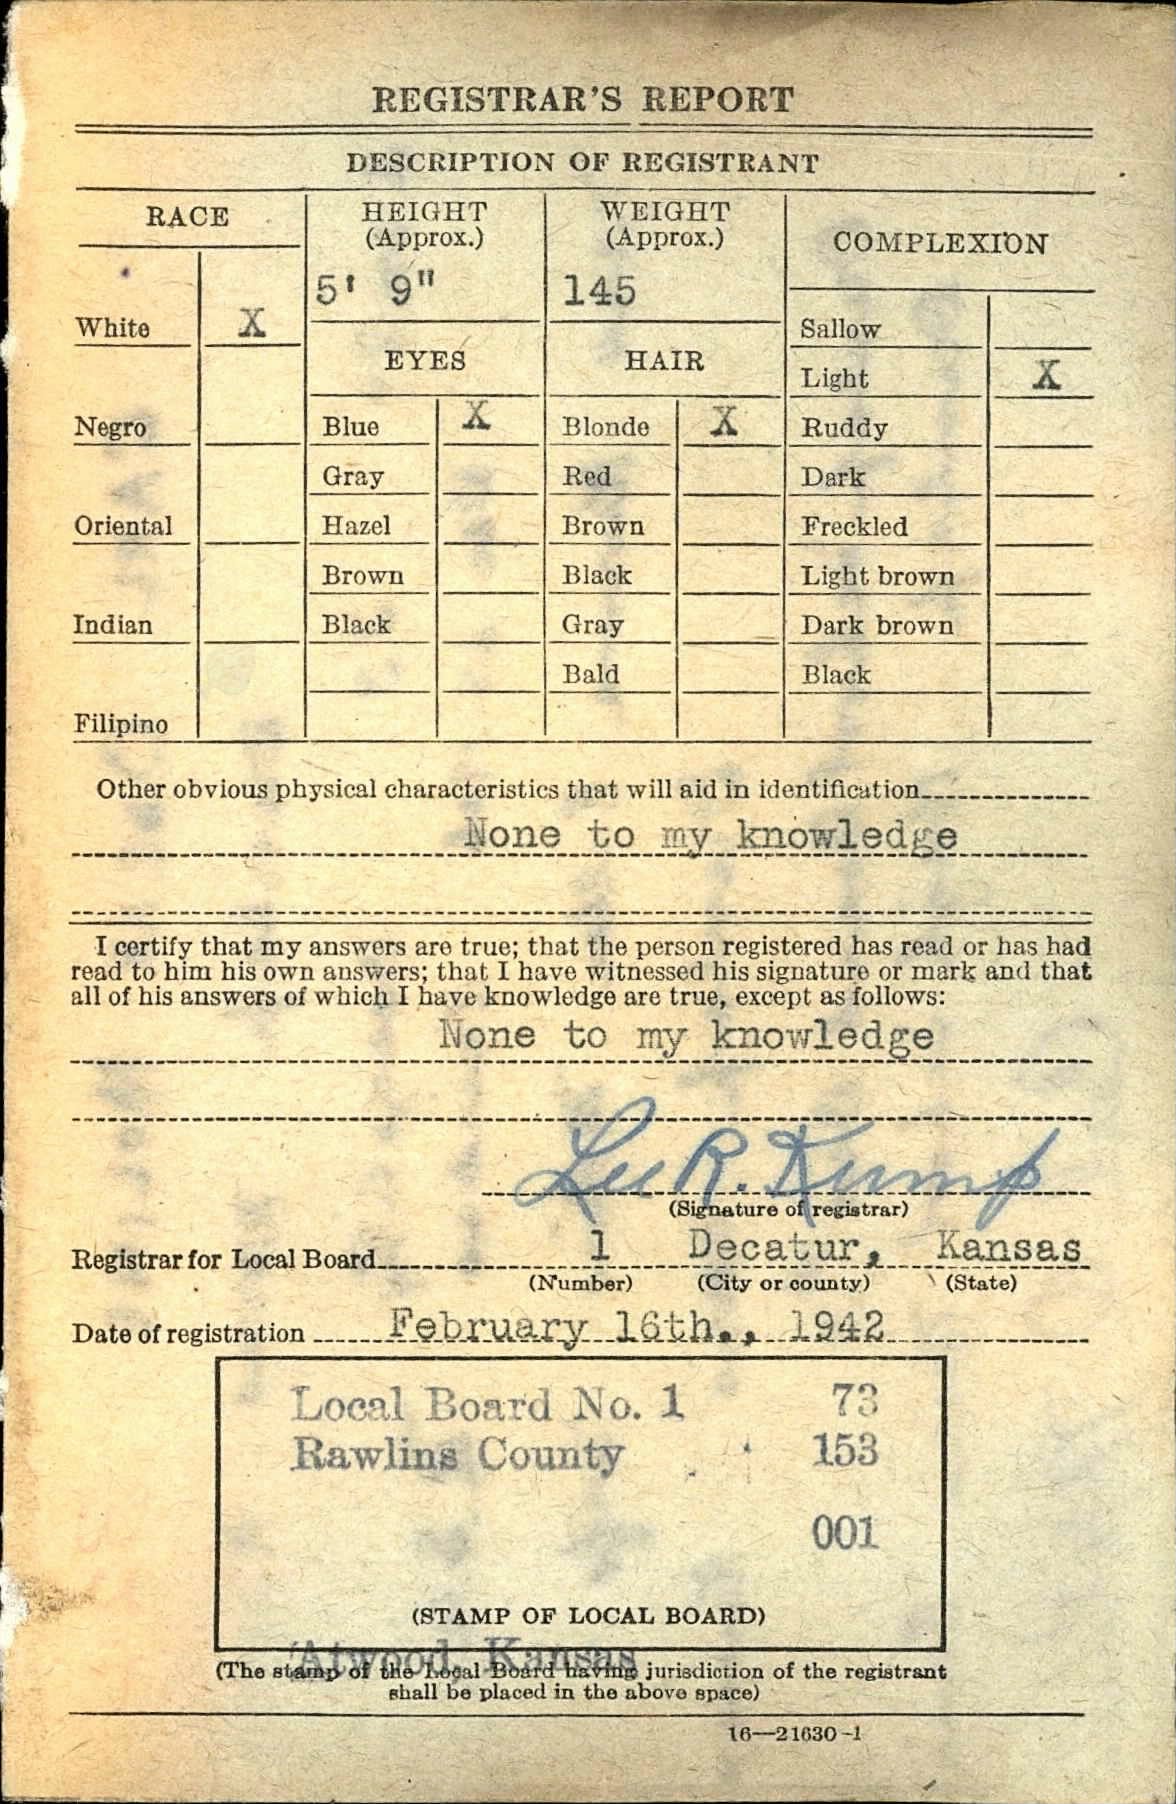 REGISTRAR'S REPORT
DESCRIPTION OF REGISTRANT
RACE
HEIGHT
(Approx.)
WEIGHT
(Approx.)
COMPLEXION
5' 9"
145
White X
Sallow
EYES
HAIR
Light X
Negro
Blue X
Blonde X
Ruddy
Gray
Red
Dark
Oriental
Hazel
Brown
Freckled
Brown
Black
Light brown
Indian
Black
Gray
Dark brown
Bald
Black
Filipino
Other obvious physical characteristics that will aid in identification
None to my knowledge
I certify that my answers are true; that the person registered has read or has had
read to him his own answers; that I have witnessed his signature or mark and that
all of his answers of which I have knowledge are true, except as follows:
None to my knowledge
Lee R. Kump
(Signature of registrar)
Registrar for Local Board 1 Decatur, Kansas
(Number) (City or county) (State)
Date of registration February 16th., 1942
Local Board No. 1 73
Rawlins County 153
001
(STAMP OF LOCAL BOARD)
Atwood, Kansas
(The stamp of the Local Board having jurisdiction of the registrant
shall be placed in the above space)
16—21630-1